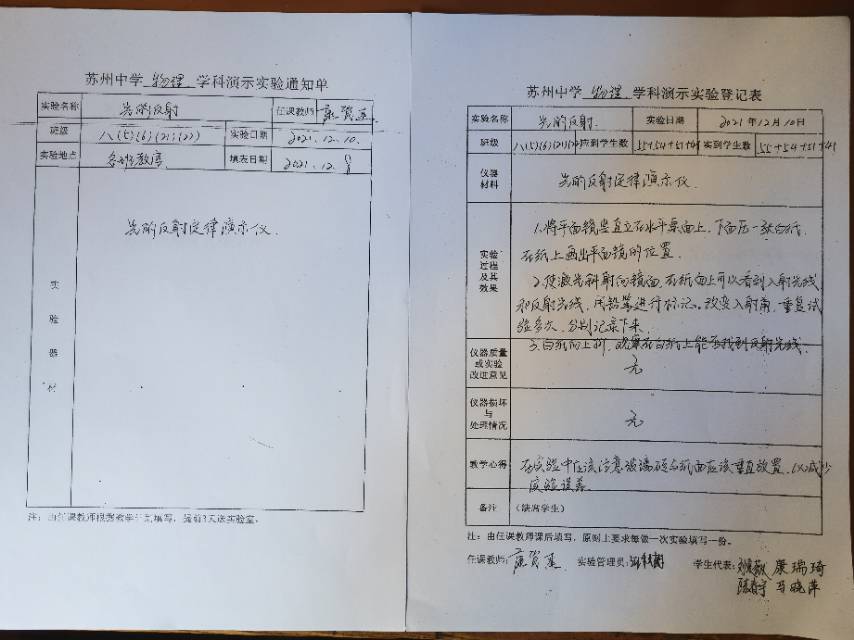 苏州中学 物理 学科演示实验通知单
实验名称 光的反射 任课教师
班级 八(5)(6)(21)(22) 实验日期 2021.12.10.
实验地点 各班教室 填表日期 2021.12.8
实验器材 光的反射定律演示仪.
注：由任课教师根据教学计划填写，提前3天送实验室。
苏州中学 物理 学科演示实验登记表
实验名称 光的反射. 实验日期 2021年12月10日
班级 八(5)(6)(21)(22) 应到学生数 实到学生数 55+54+51+41
仪器材料 光的反射定律演示仪.
实验过程及其效果 1.将平面镜竖直立在水平桌面上，下面压一张白纸，
在纸上画出平面镜的位置.
2.使激光斜射向镜面，在纸面上可以看到入射光线
和反射光线，用铅笔进行标记。改变入射角，重复试
验多次，分别记录下来.
3.白纸向上折，观察在白纸上能否找到反射光线.
仪器质量或实验改进意见 无
仪器损坏与处理情况 无
教学心得 在实验中应该注意玻璃砖与纸面应该垂直放置，以减少
实验误差
备注 (缺席学生)
注：由任课教师课后填写，原则上要求每做一次实验填写一份。
任课教师： 实验管理员： 学生代表： 康瑞琦
马晓萍